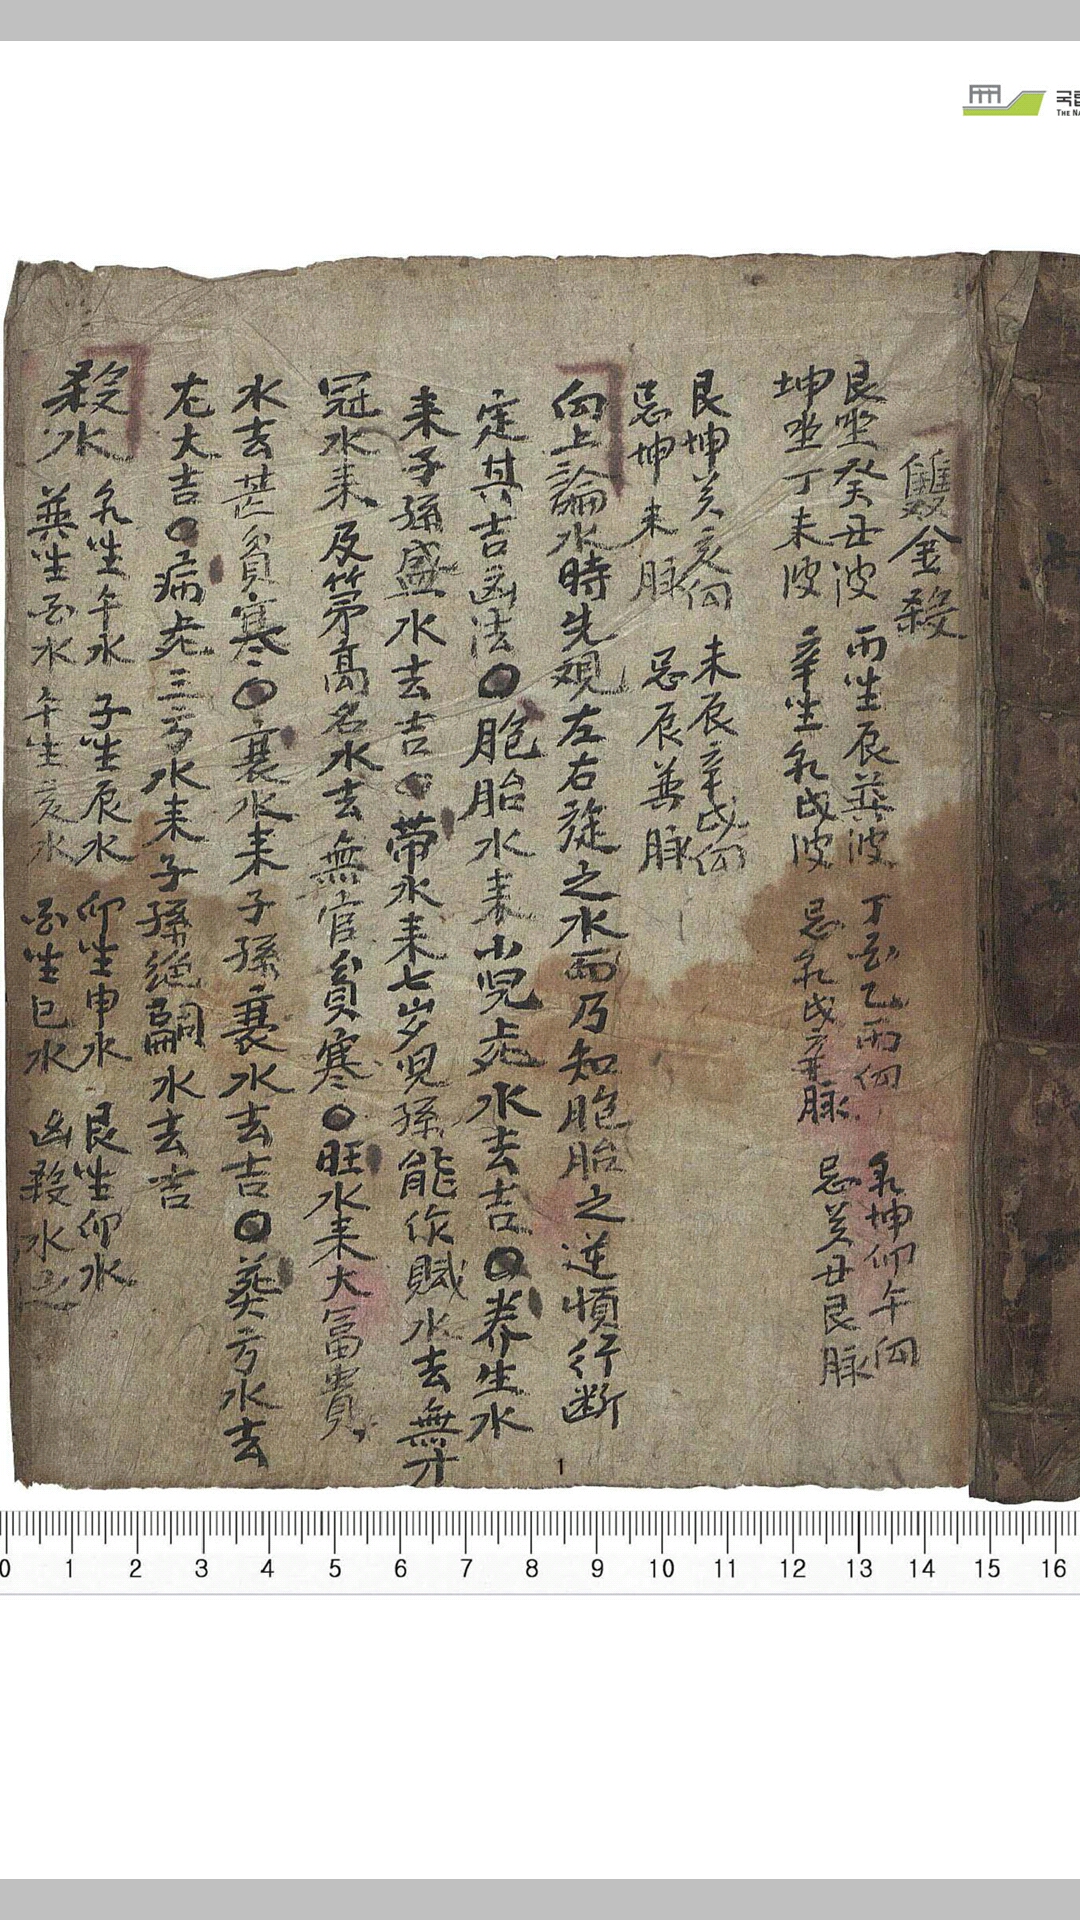 雙金殺
艮坐癸丑破 丙坐辰巽破 丁酉乙丙向 乾坤卯午向
坤坐丁未破 辛坐乾戌破 忌乾戌亥脉 忌癸丑艮脉
艮坤癸亥向 未辰辛戌向
忌坤未脉 忌辰巽脉
向上論水時先觀左右旋之水而乃知胞胎之逆順行断
定其吉凶法○胞胎水来小児死水去吉○养生水
来子孫盛水去吉○帶水来七岁児孫能作賦水去無才
冠水来及第高名水去無官貧寒○旺水来大冨貴
水去 貧寒○衰水来子孫衰水去吉○葬方水去
左大吉○病死三方水来子孫絶嗣水去吉
殺水
乾坐午水 子坐辰水 卯坐申水 艮坐卯水
巽坐酉水 午坐亥水 酉坐巳水 凶殺水也
1
0 1 2 3 4 5 6 7 8 9 10 11 12 13 14 15 16